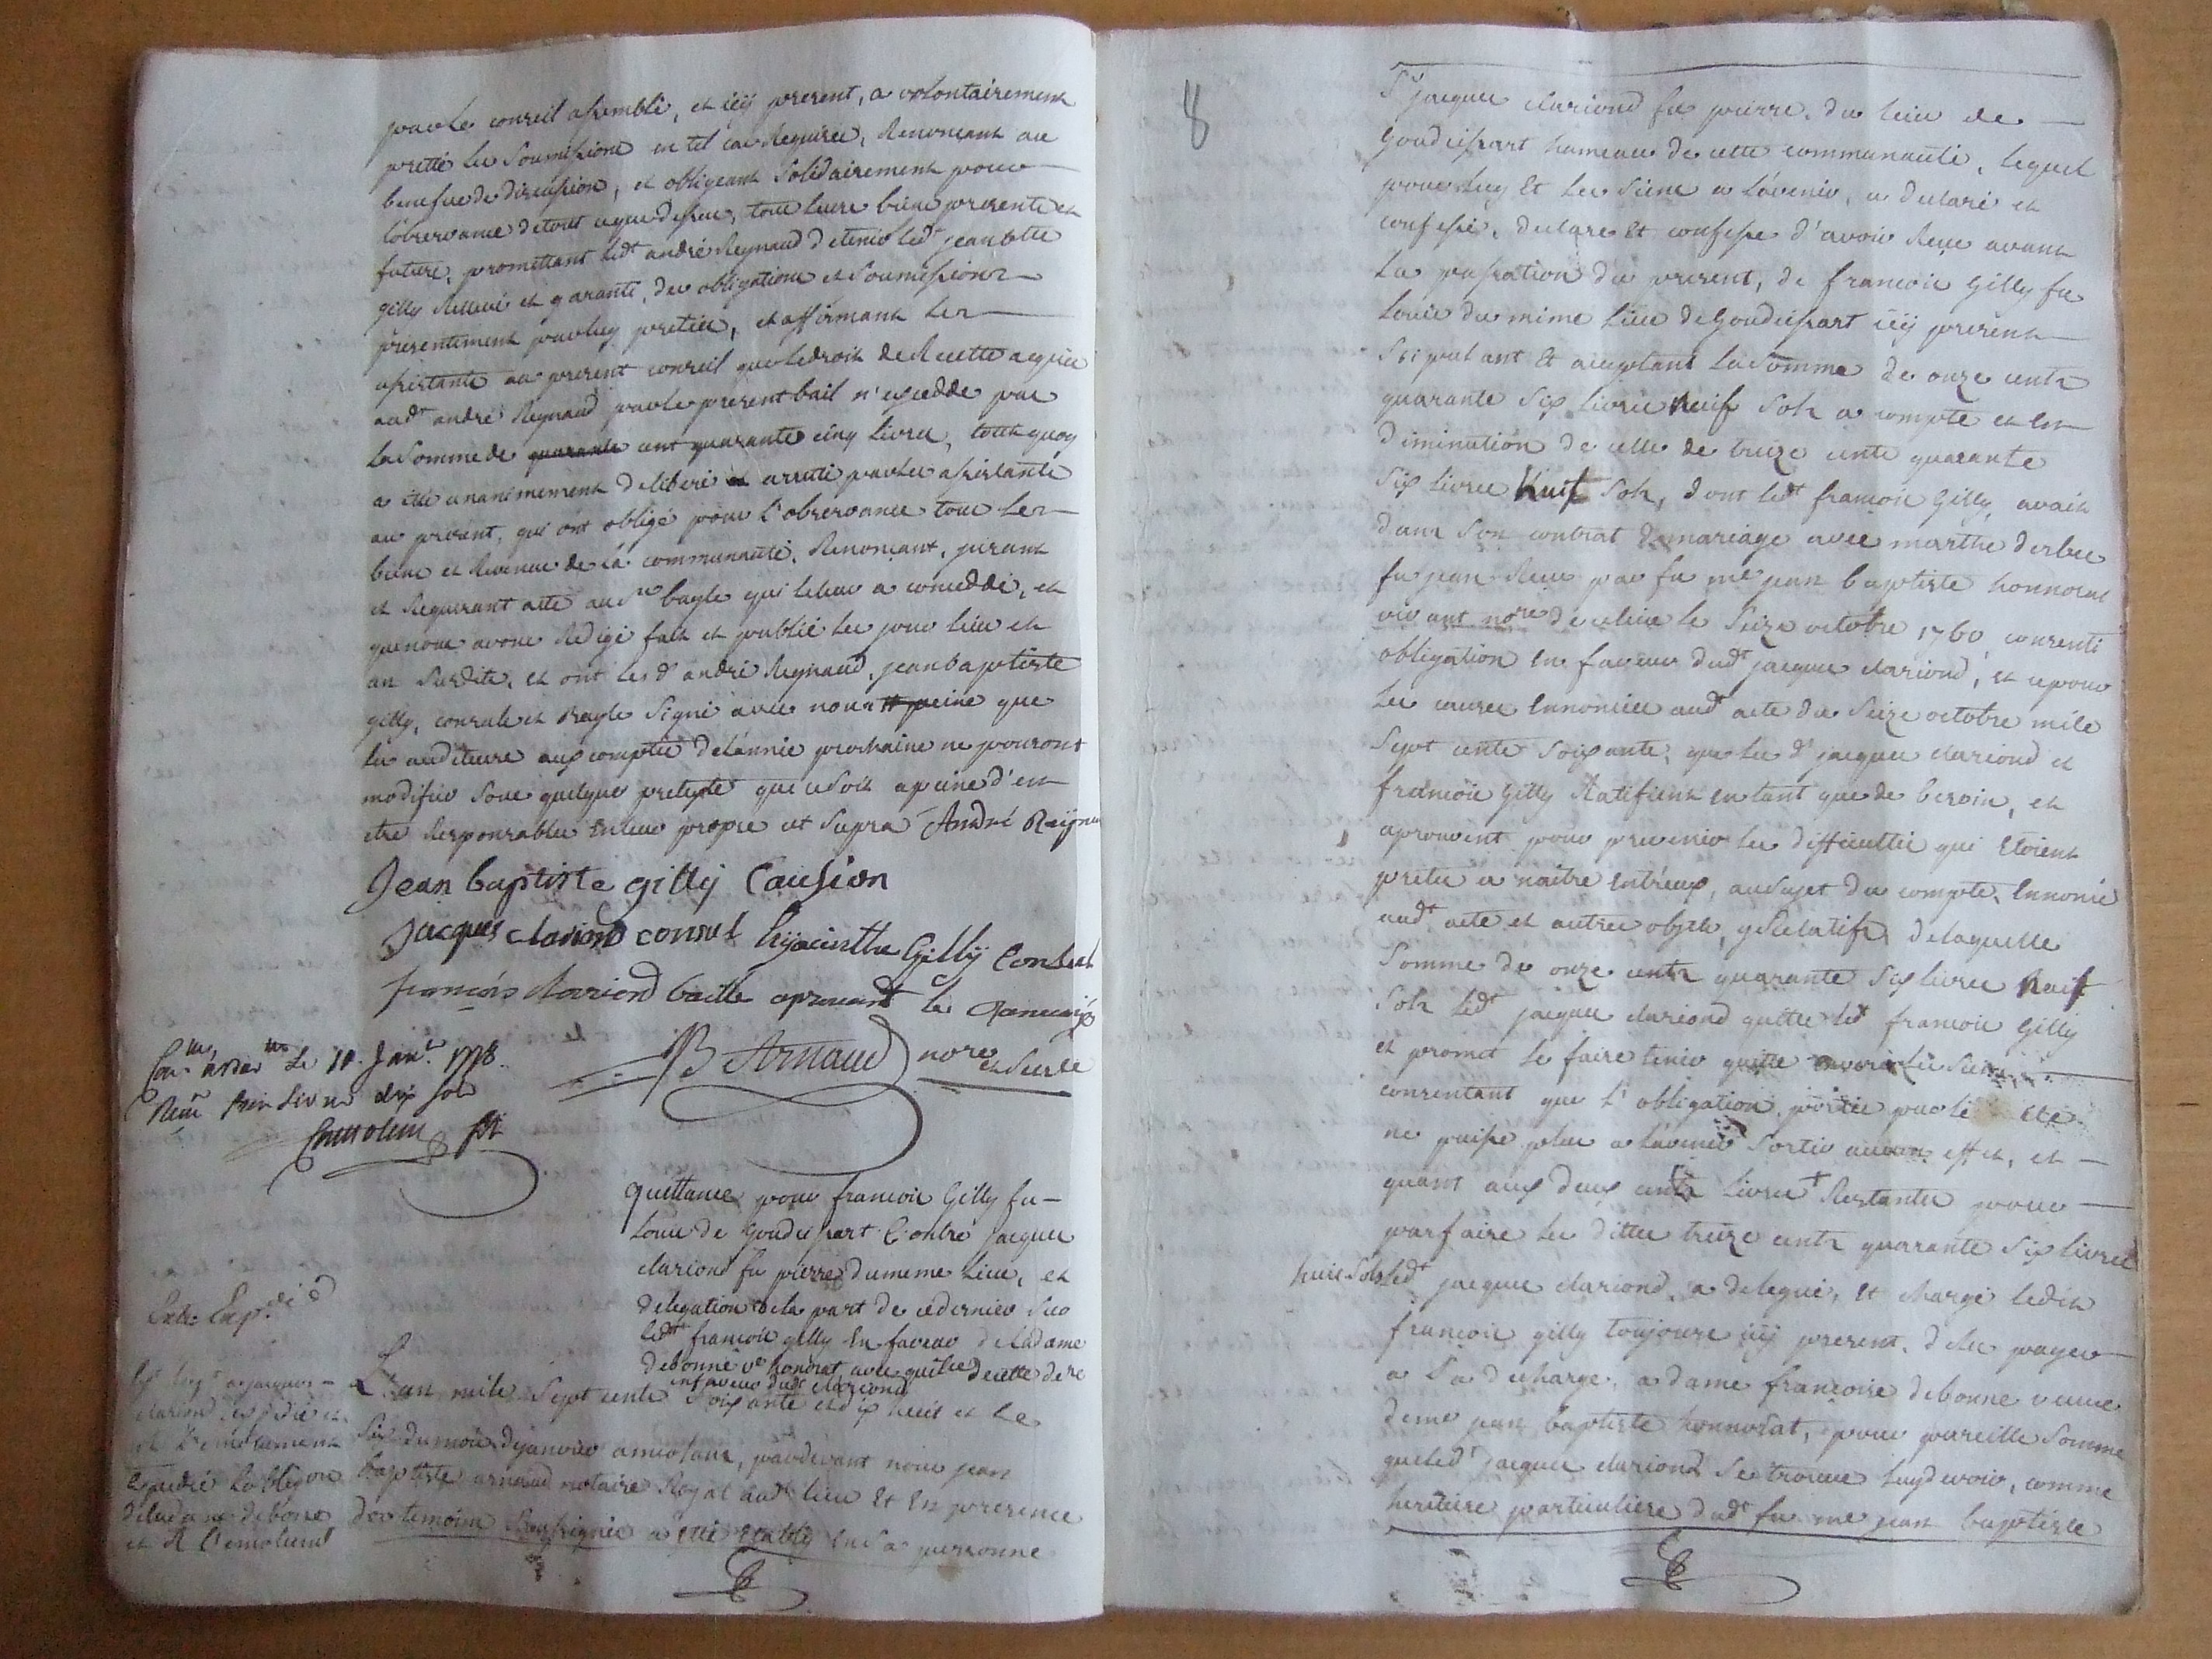 par le conseil assemblé, et icy present, a volontairement
pretté les soumissions en tel cas requises, Renonceant au
benefice de discussion, et obligeant solidairement pour
l'observance de tout ce que dessus, tous leurs biens presents et
futurs, promettant ledt andré Reynaud de tenir ledt jean btte
gilly Rellevé et garanti, des obligations et soumissions
presentement par luy prettées, et affirmant les
assistants au present conseil que le droit de Recette acquis
audt andré Reynaud par le present bail n'excedde pas
la somme de quarante cent quarante cinq livres, tout quoy
a été unanimement delibéré et arretté par les assistants
au present, qui ont obligé pour l'observance tous les
biens et Revenus de la communauté, Renonceant, jurant
et Requerant acte au sr bayle qui le leur a conceddé, et
que nous avons Redigé fait et publié les jour lieu et
an susdits, et ont les dts andré Reynaud, jean baptiste
gilly, consuls et Bayle signé avec nous et peine que
les auditeurs aux comptes de l'année prochaine ne pourront
modifier sous quelque pretexte que ce soit a peine d'en
etre Responsables en leur propre ut supra André Reÿnaud
Jean baptiste gilly Causion
Jacques clariond consul hÿacinthe Gillÿ Consul
françois clariond baille aprouant la
JB Arnaud nore
Con. le 18 Janr. 1778.
Reçu livres dix sols
quittance pour francois Gilly fu
Louis de Goudeissart Contre jacques
clariond fu pierre du meme lieu, et
delegation de la part de ce dernier sur
ledt francois gilly En faveur de la dame
debonne ve honorat, avec quitce de cette dere
en faveur dudt clariond
Exte Expédié
L'an mile sept cents soixante et dix huit et le
six du mois de janvier a midy, pardevant nous jean
baptiste arnaud notaire Royal audt lieu Et En presence
des temoins soussignés a été Etably En sa personne
de la dame debonne
et R l'emolument
8
Sr jacques clariond fu pierre, du lieu de
Goudeissart hameau de cette communauté, lequel
pour luy Et les siens a l'avenir, a declaré et
confessé, declare Et confesse d'avoir Reçu avant
la passation du present, de francois Gilly fu
Louis du même lieu de Goudeissart icy present
stipulant Et acceptant la somme de onze cents
quarante six livres huit sols a compte et en
diminution de celle de treize cents quarante
six livres huit sols, dont ledt francois Gilly, avait
dans son contrat de mariage avec marthe derbes
fu jean Reçu par fu me jean baptiste honnorat
vivant nore de ce lieu le seize octobre 1760, consenti
obligation En faveur dudt jacques clariond, et ce pour
les causes Ennoncées audt acte du seize octobre mile
sept cents soixante, que les dts jacques clariond et
francois Gilly Ratifient en tant que de besoin, et
aprouvent pour prevenir les difficultés qui Etoient
pretes a naitre Entr'eux, au sujet du compte Ennoncé
audt acte et autres objets, y Relatifs, de laquelle
somme de onze cents quarante six livres huit
sols ledt jacques clariond quitte ledt francois Gilly
et promet le faire tenir quitte envers les siens
consentant que l'obligation portée par le acte
ne puisse plus a l'avenir sortir aucun effet, et
quant aux deux cents livres Restantes pour
parfaire les dittes treize cents quarante six livres
huit sols ledt jacques clariond, a delegué, Et chargé ledit
francois gilly toujours icy present, de les payer
a sa decharge, a dame francoise debonne veuve
de me jean baptiste honnorat, pour pareille somme
que ledt jacques clariond se trouve luy devoir, comme
heritiere particuliere dudt fu me jean baptiste